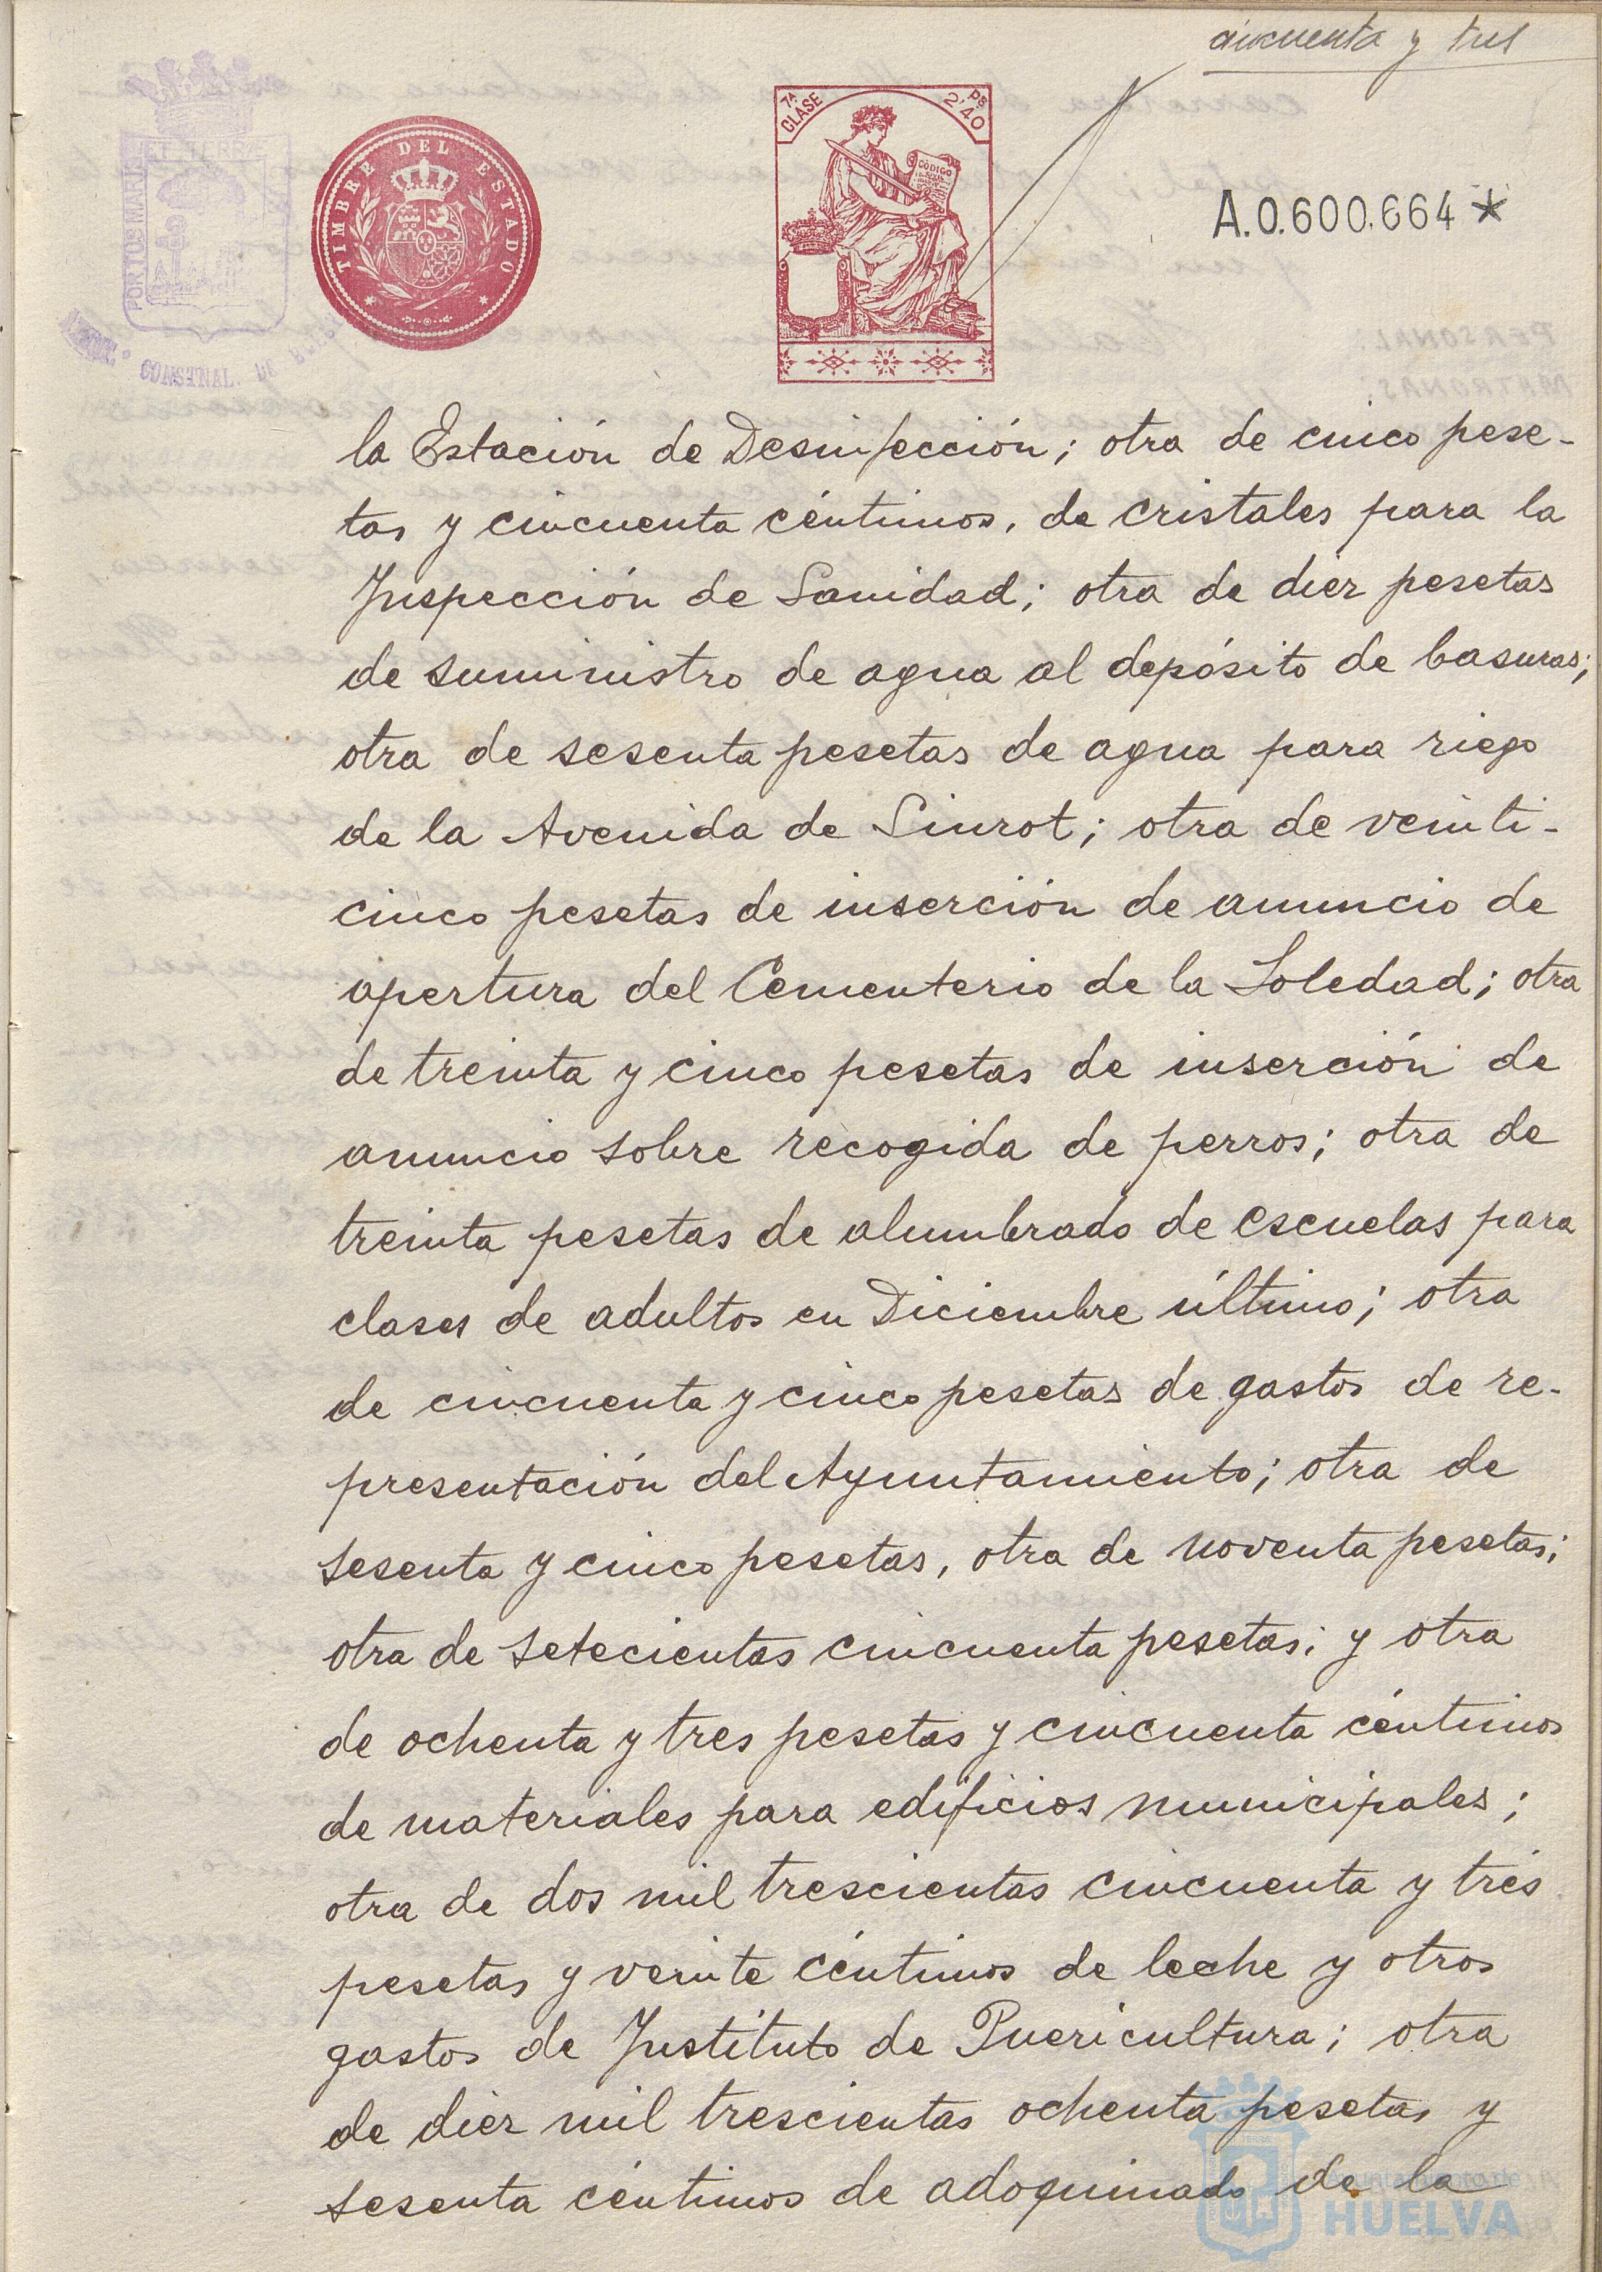 cincuenta y tres
7ª CLASE
Ps 2'40
CÓDIGO
TIMBRE DEL ESTADO
PORTUS MARIS ET TERRÆ
CONSTNAL. DE
A.0.600.664*
la Estación de Desinfección; otra de cinco pese-
tas y cincuenta céntimos, de cristales para la
Inspección de Sanidad; otra de diez pesetas
de suministro de agua al depósito de basuras;
otra de sesenta pesetas de agua para riego
de la Avenida de Siurot; otra de veinti-
cinco pesetas de inserción de anuncio de
apertura del Cementerio de la Soledad; otra
de treinta y cinco pesetas de inserción de
anuncio sobre recogida de perros; otra de
treinta pesetas de alumbrado de escuelas para
clases de adultos en Diciembre último; otra
de cincuenta y cinco pesetas de gastos de re-
presentación del Ayuntamiento; otra de
sesenta y cinco pesetas, otra de noventa pesetas;
otra de setecientas cincuenta pesetas; y otra
de ochenta y tres pesetas y cincuenta céntimos
de materiales para edificios municipales;
otra de dos mil trescientas cincuenta y trés
pesetas y veinte céntimos de leche y otros
gastos de Instituto de Puericultura; otra
de diez mil trescientas ochenta pesetas y
sesenta céntimos de adoquinado de la
Ayuntamiento de
HUELVA